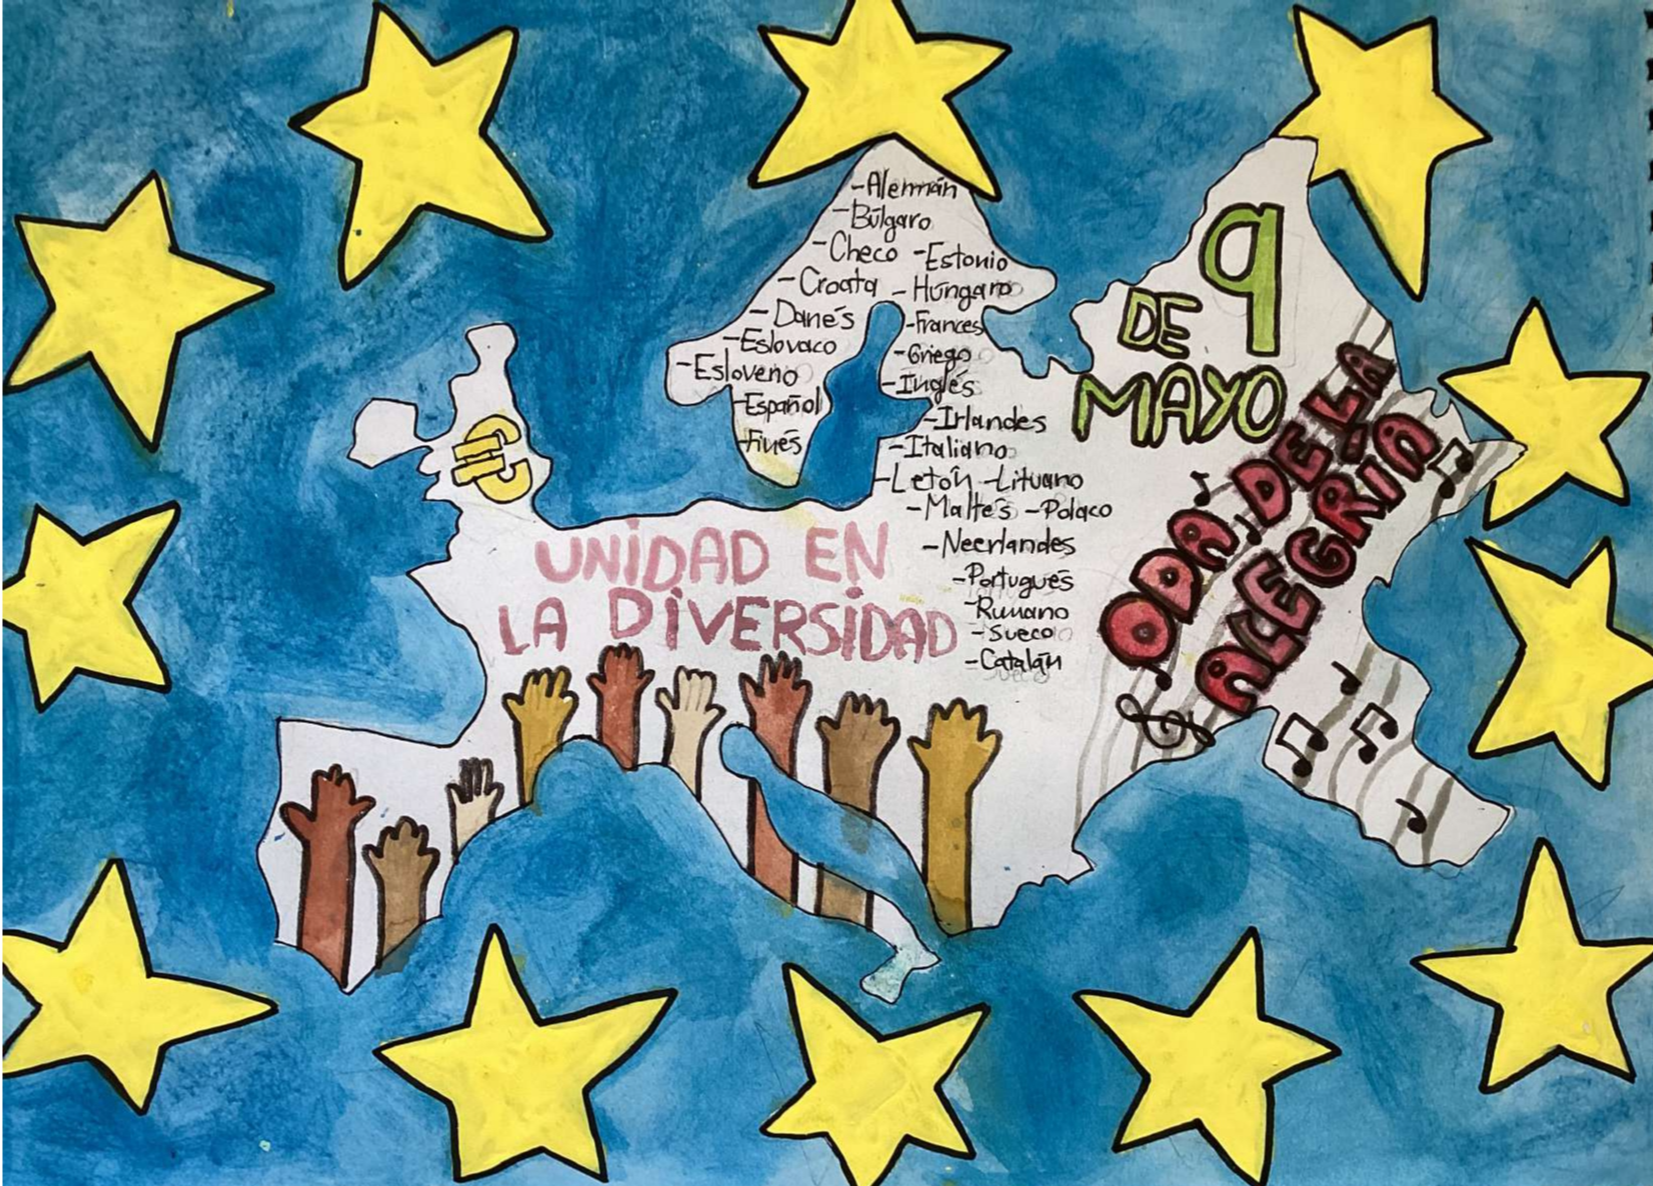 -Alemán
-Búlgaro
-Checo -Estonio
-Croata -Húngaro
-Danés -Frances
-Eslovaco -Griego
-Esloveno -Inglés
-Español -Irlandes
-Finés -Italiano
-Letón -Lituano
-Maltés -Polaco
-Neerlandes
-Portugués
-Rumano
-Sueco
-Catalán
9
DE
MAYO
€
UNIDAD EN
LA DIVERSIDAD
ODA DE LA
ALEGRÍA